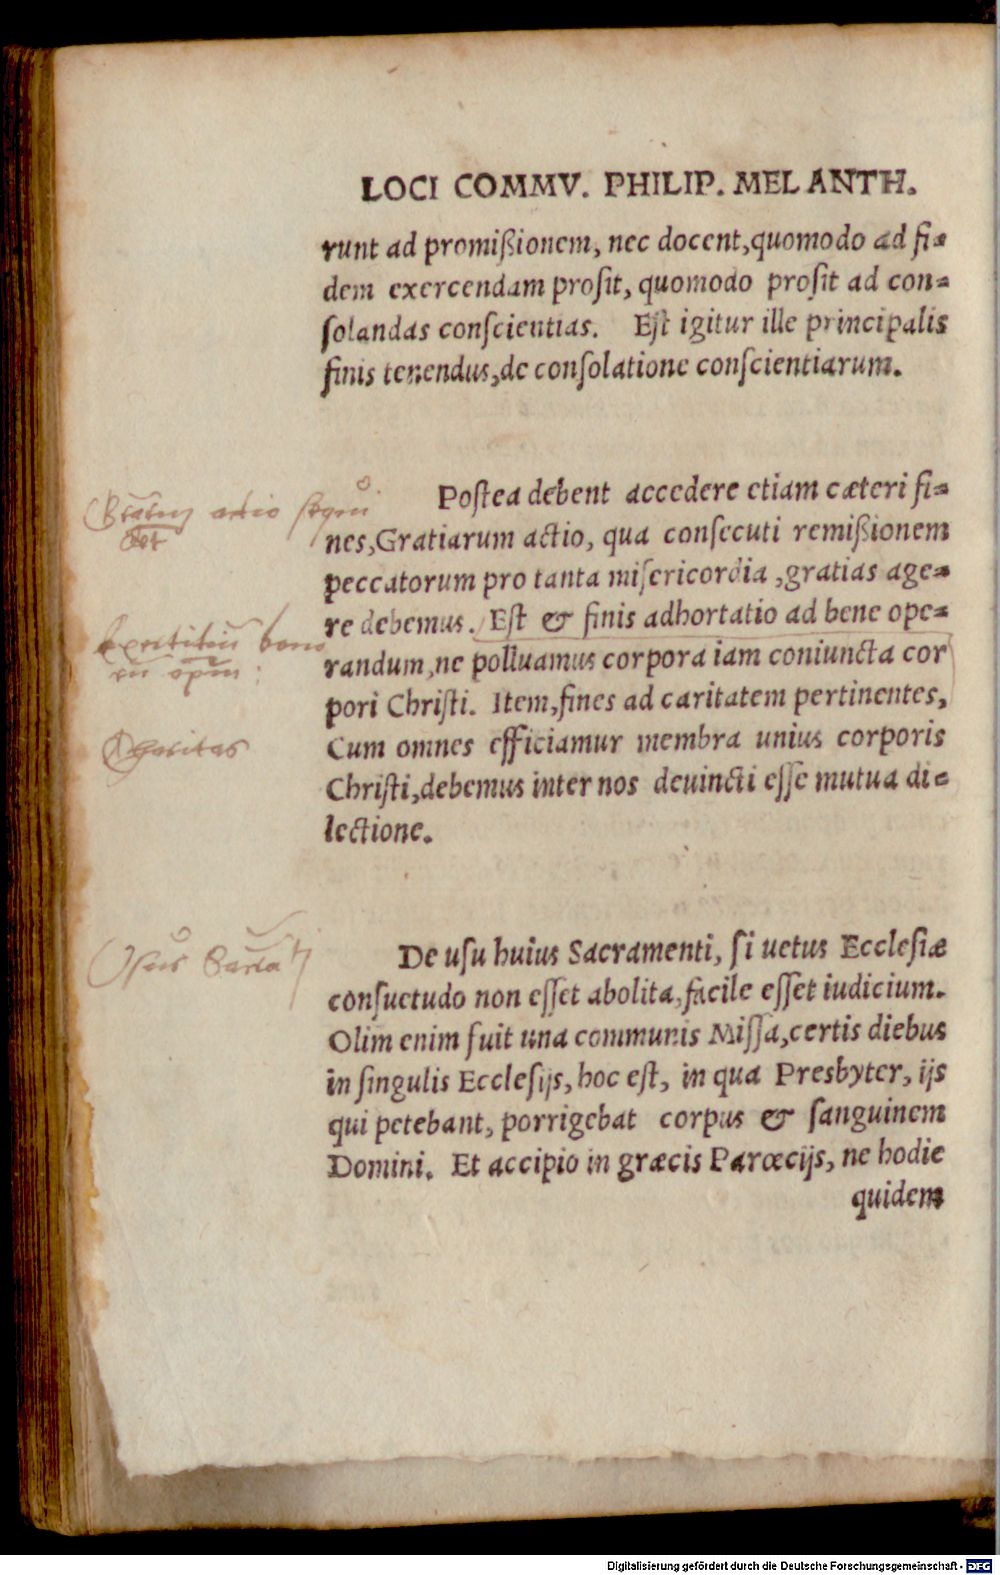 LOCI COMMV. PHILIP. MELANTH.
runt ad promißionem, nec docent, quomodo ad fi-
dem exercendam prosit, quomodo prosit ad con-
solandas conscientias. Est igitur ille principalis
finis tenendus, de consolatione conscientiarum.
Postea debent accedere etiam cæteri fi-
nes, Gratiarum actio, qua consecuti remißionem
peccatorum pro tanta misericordia, gratias age-
re debemus. Est & finis adhortatio ad bene ope-
randum, ne polluamus corpora iam coniuncta cor
pori Christi. Item, fines ad caritatem pertinentes,
Cum omnes efficiamur membra unius corporis
Christi, debemus inter nos deuincti esse mutua di-
lectione.
Charitas
De usu huius Sacramenti, si uetus Ecclesiæ
consuetudo non esset abolita, facile esset iudicium.
Olim enim fuit una communis Missa, certis diebus
in singulis Ecclesijs, hoc est, in qua Presbyter, ijs
qui petebant, porrigebat corpus & sanguinem
Domini. Et accipio in græcis Parœcijs, ne hodie
quidem
Usus
Digitalisierung gefördert durch die Deutsche Forschungsgemeinschaft - DFG